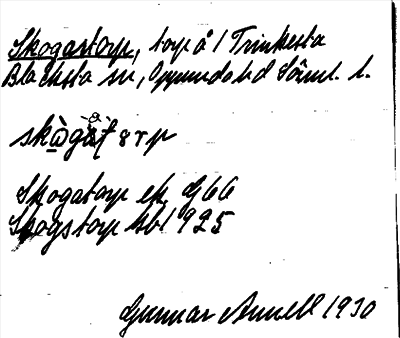 Skogastorp, torp å 1 Trinkesta
Blacksta sn, Oppunda hd Söml. l.
Skogatorp ek. G66
Skogstorp sbl 925
Gunnar Annell 1930